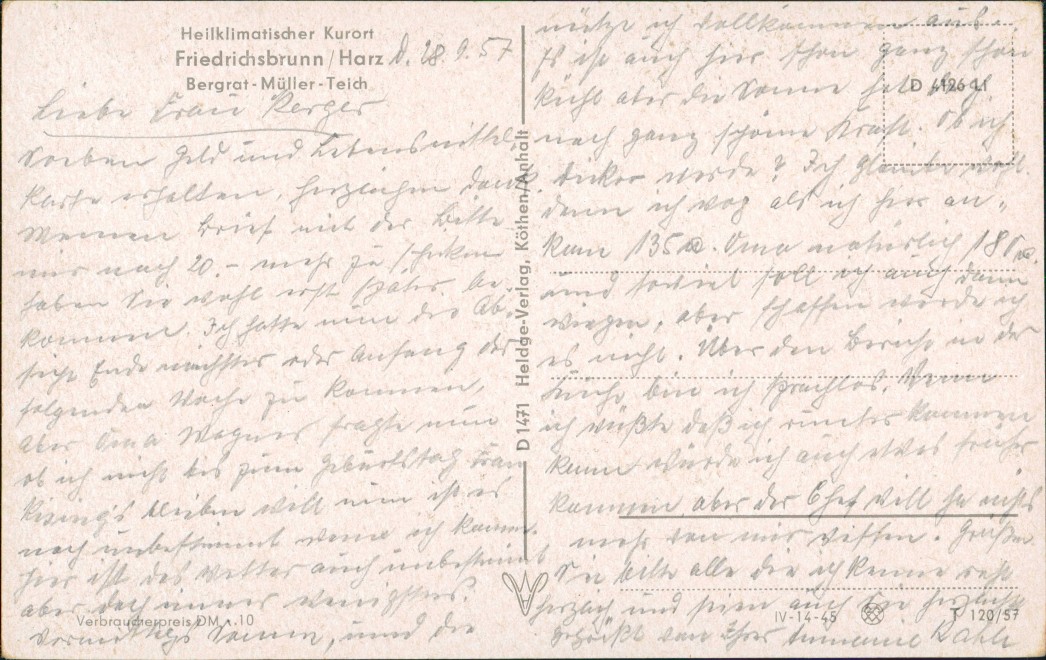 Heilklimatischer Kurort
Friedrichsbrunn/Harz
Bergrat-Müller-Teich
d. 28.9.57
Liebe Frau Berger
Soeben Geld und Lebensmittel-
karte erhalten, herzlichen Dank.
Meinen Brief mit der Bitte
mir noch 20.- mehr zu schicken
haben Sie wohl erst später be-
kommen. Ich hatte nun die Ab-
sicht Ende nächster oder Anfang der
folgenden Woche zu kommen,
aber Oma Wagner fragte nun
ob ich nicht bis zum Geburtstag Frau
bleiben will nun ist es
noch unbestimmt wann ich komme.
Hier ist das Wetter auch unbestimmt
aber doch immer wenigstens
Vormittags Sonne, und die
nütze ich vollkommen aus.
Es ist auch hier schon ganz schön
kühl aber die Sonne hat doch
noch ganz schöne Kraft. Ob ich
dicker werde? Ich glaube
denn ich wog als ich hier an-
kam 135 Oma natürlich 18
und soviel soll ich auch dann
wiegen, aber schaffen würde ich
es nicht. Über den Bericht in der
Küche bin ich sprachlos. Wenn
ich wüßte daß ich runter kommen
kann würde ich auch etwas früher
kommen aber der Chef will ja nichts
mehr von mir wissen. Grüßen
Sie bitte alle die ich kenne recht
herzlich und seien auch Sie herzlichst
gegrüßt von Ihrer
D 4126 11
D 1471 Heldge-Verlag, Köthen/Anhalt
Verbraucherpreis DM -.10
IV-14-45
T 120/57